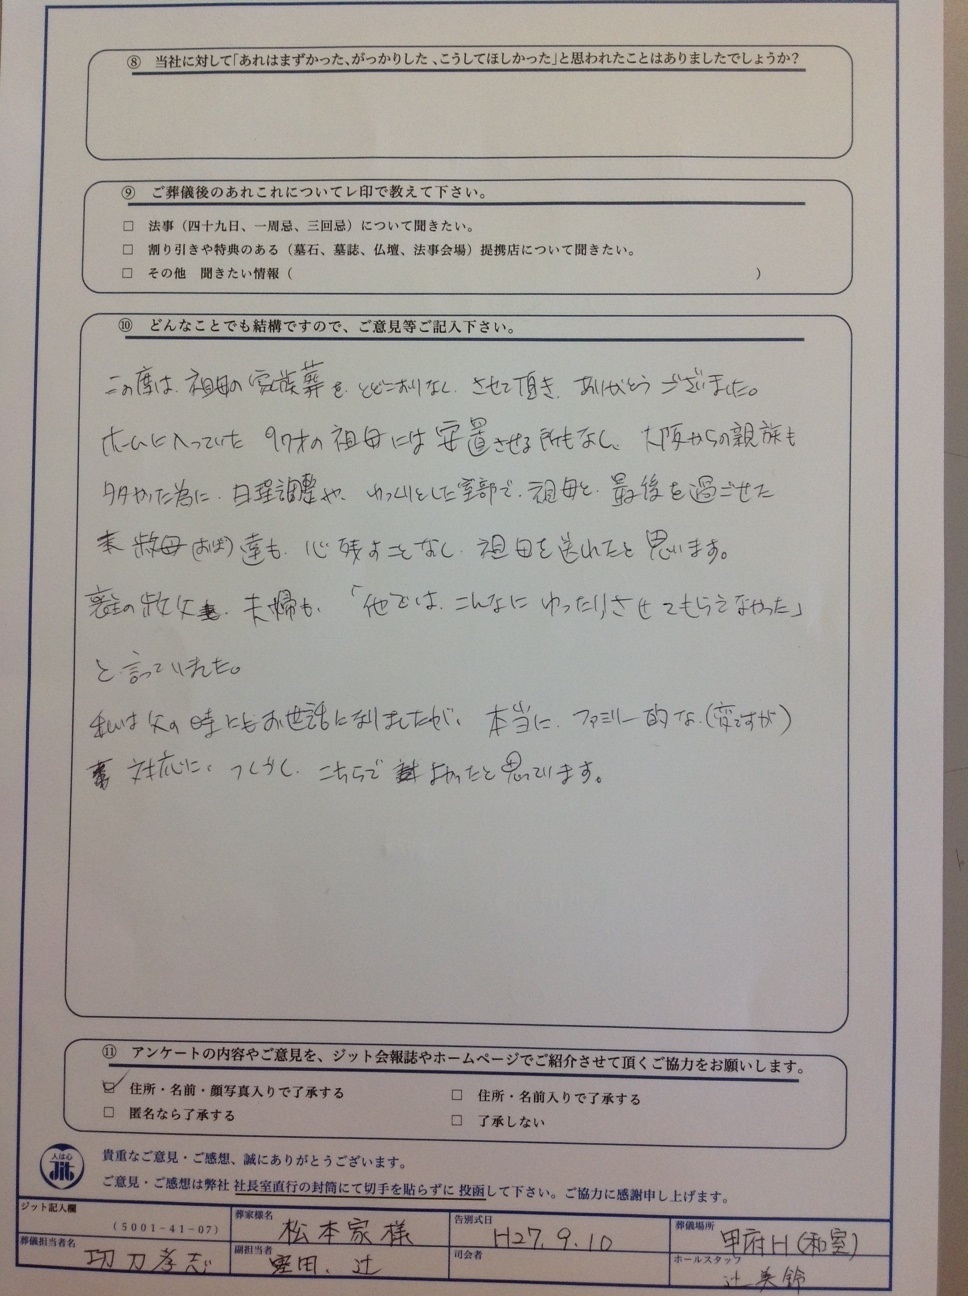 ⑧ 当社に対して「あれはまずかった、がっかりした、こうしてほしかった」と思われたことはありましたでしょうか?
⑨ ご葬儀後のあれこれについてレ印で教えて下さい。
□ 法事(四十九日、一周忌、三回忌)について聞きたい。
□ 割り引きや特典のある(墓石、墓誌、仏壇、法事会場)提携店について聞きたい。
□ その他 聞きたい情報( )
⑩ どんなことでも結構ですので、ご意見等ご記入下さい。
この度は、祖母の家族葬を、とどこおりなし、させて頂き、ありがとうございました。
ホームに入っていた 97才の祖母には安置させる所もなし、大阪からの親族も
多かった為に、日程調整や、ゆっくりとした室部で、祖母と、最後を過ごせた
叔母(おば)達も、心残すことなし、祖母を送れたと思います。
喪主の叔父、夫婦も、「他では、こんなに ゆったりさせてもらえなかった」
と言っていました。
私は父の時にもお世話になりましたが、本当に、ファミリー的な、(変ですが)
対応に、つくづく、こちらで よかったと思っています。
⑪ アンケートの内容やご意見を、ジット会報誌やホームページでご紹介させて頂くご協力をお願いします。
☑ 住所・名前・顔写真入りで了承する □ 住所・名前入りで了承する
□ 匿名なら了承する □ 了承しない
人は心 Jit
貴重なご意見・ご感想、誠にありがとうございます。
ご意見・ご感想は弊社 社長室直行の封筒にて切手を貼らずに 投函して下さい。ご協力に感謝申し上げます。
ジット記入欄 (5001-41-07) 葬家様名 松本家様 告別式日 H27.9.10 葬儀場所 甲府H(和室)
葬儀担当者名 功刀孝志 副担当者 堅田、辻 司会者 ホールスタッフ 辻美鈴